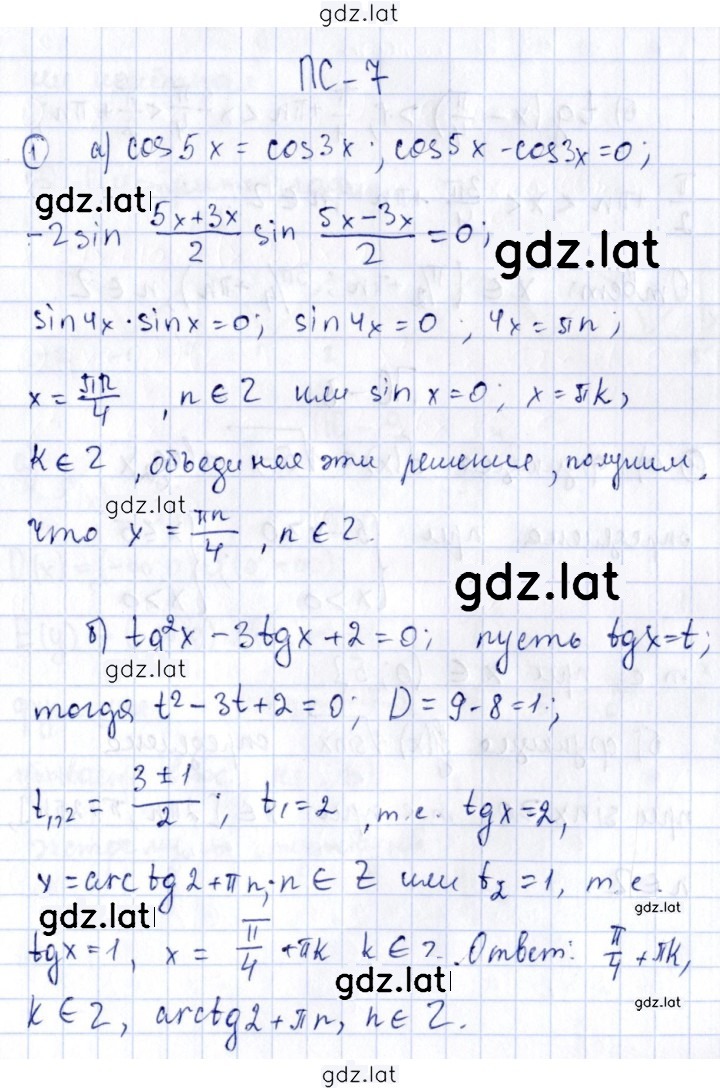 gdz.lat
ПС-7
① а) cos5x = cos3x; cos5x - cos3x = 0;
gdz.lat
-2sin (5x+3x)/2 sin (5x-3x)/2 = 0;
gdz.lat
sin4x·sinx=0; sin4x=0, 4x=πn;
x = πn/4, n∈Z или sin x=0; x=πk,
k∈Z, объединяя эти решения, получим,
gdz.lat
что x = πn/4, n∈Z.
gdz.lat
б) tg²x - 3tgx + 2 = 0; пусть tgx=t;
gdz.lat
тогда t² - 3t + 2 = 0; D = 9-8=1;
t₁,₂ = (3±1)/2; t₁=2, т.е. tgx=2,
x=arctg2+πn; n∈Z или t₂=1, т.е.
gdz.lat
gdz.lat
tgx=1, x = π/4 + πk k∈Z. Ответ: π/4 + πk,
gdz.lat
gdz.lat
k∈Z, arctg2+πn, n∈Z.
gdz.lat